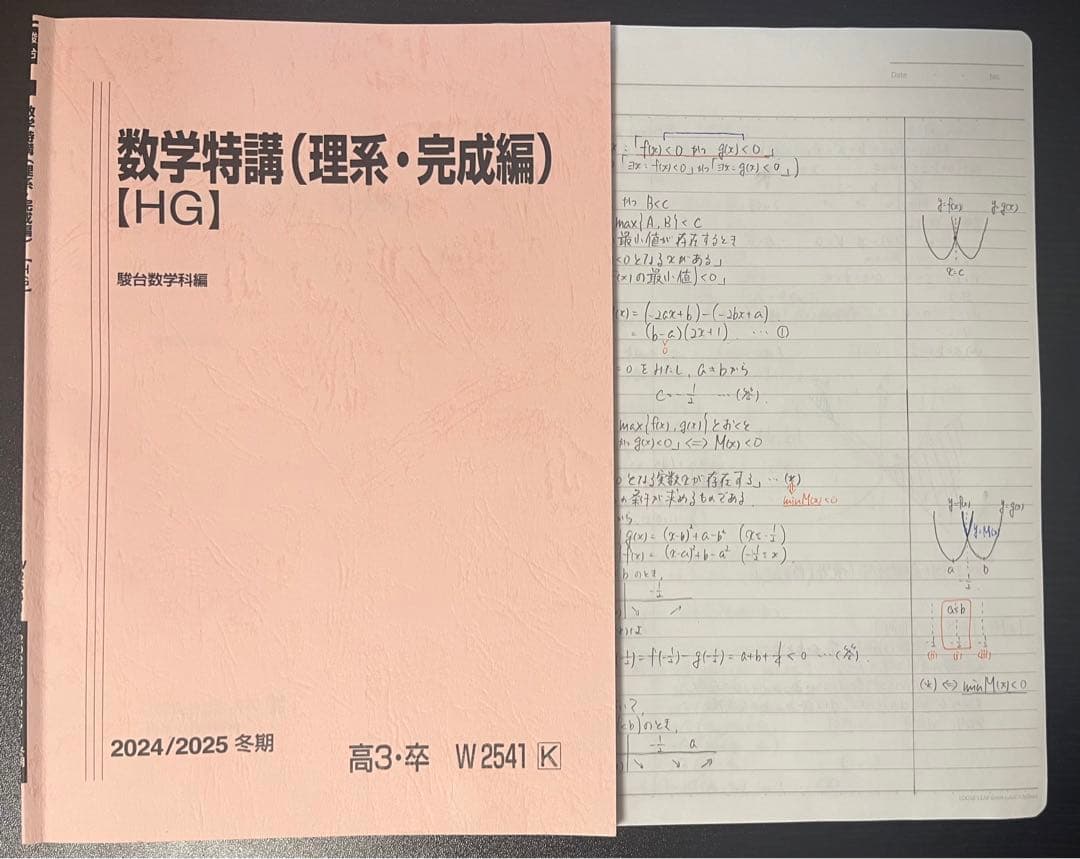 数学特講(理系・完成編)
【HG】
駿台数学科編
2024/2025 冬期
高3・卒 W2541 K
Date No.
「f(x)<0 かつ g(x)<0」
「∃x: f(x)<0」かつ「∃x: g(x)<0」
かつ B<c
max{A, B}<C
最小値が存在するとき
<0となるxがある」
の最小値)<0」
(x) = (-2ax+b)-(-2bx+a)
= (b-a)(2x+1) … ①
0
=0をみたし, a≠bから
C=-1/2 …(答)
max{f(x), g(x)}とおくと
かつ g(x)<0」⇔ M(x)<0
となる実数xが存在する」…(*)
条件が求めるものである
min M(x)<0
から
g(x) = (x-b)²+a-b² (x≤-1/2)
f(x) = (x-a)²+b-a² (-1/2≤x)
のとき,
-1/2
(-1/2)=f(-1/2)=g(-1/2)=a+b+1/4<0 …(答)
のとき,
-1/2 a
y=f(x) y=g(x)
x=c
y=f(x) y=g(x)
y=M(x)
a b
-1/2
a≤b
-1/2 -1/2 -1/2
(ii) (i) (iii)
(*) ⇔ min M(x)<0